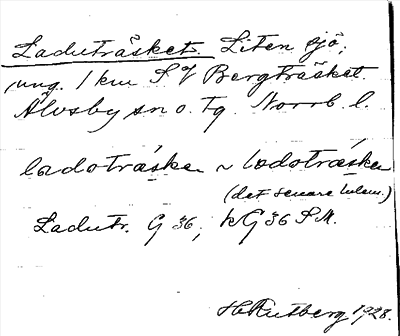 Laduträsket. Liten sjö,
ung. 1 km SV Bergträsket.
Älvsby sn o. tg. Norrb. l.
ladoträske ~ ladoträske
(det senare
Ladutr. G 36, kG 36 S.M.
H. Rutberg 1928.